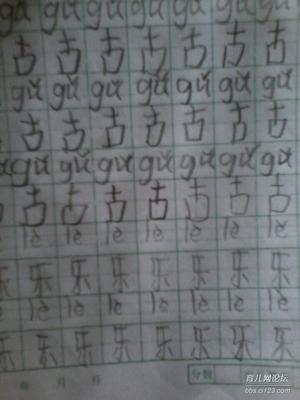 gǔ gǔ gǔ gǔ gǔ gǔ gǔ
古 古 古 古 古 古 古
gǔ gǔ gǔ gǔ gǔ gǔ gǔ
古 古 古 古 古 古 古
gǔ gǔ gǔ gǔ gǔ gǔ gǔ
古 古 古 古 古 古
lè lè lè lè lè lè lè
乐 乐 乐 乐 乐 乐 乐
lè lè lè lè lè lè lè
乐 乐 乐 乐 乐 乐 乐
月 日 分数
育儿网论坛
bbs.ci123.com